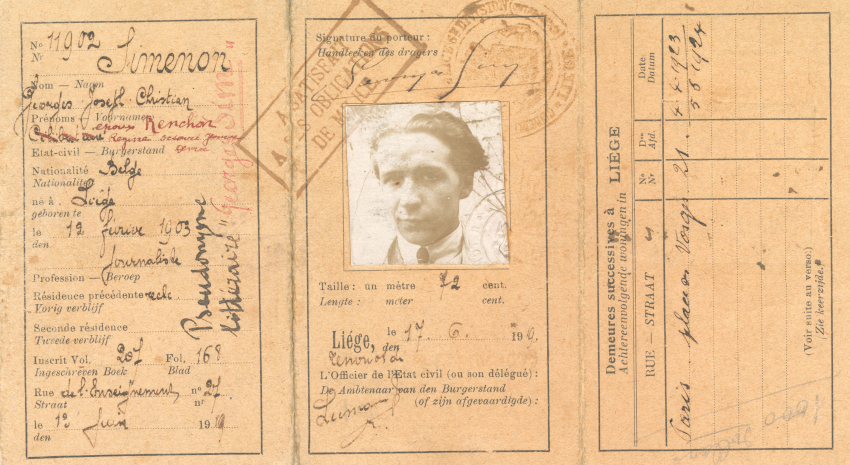 No 11902
Nr
Simenon
Nom — Naam
Georges Joseph Christian
Prénoms — Voornamen
époux Renchon
Etat-civil — Burgerstand
Nationalité Belge
Nationaliteit
né à Liége
geboren te
le 12 février 1903
den
Journaliste
Profession — Beroep
Résidence précédente
Vorig verblijf
Seconde résidence
Tweede verblijf
Inscrit Vol. 207 Fol. 168
Ingeschreven Boek Blad
Rue de l'Enseignement no 27
Straat nr
le 19
den
Pseudonyme
littéraire
"Georges Sim"
Signature du porteur :
Handteeken des dragers :
DE MILICE
Taille : un mètre 72 cent.
Lengte : meter cent.
Liége, le 17. 6. 19
den
L'Officier de l'Etat civil (ou son délégué) :
De Ambtenaar van den Burgerstand
(of zijn afgevaardigde) :
Demeures successives à LIÉGE
Achtereenvolgende woningen in
RUE — STRAAT
No
Nr
Don
Afd.
Date
Datum
Paris place des Vosges 21.
4.4.1923
5 8 1924
(Voir suite au verso.)
(Zie keerzijde.)